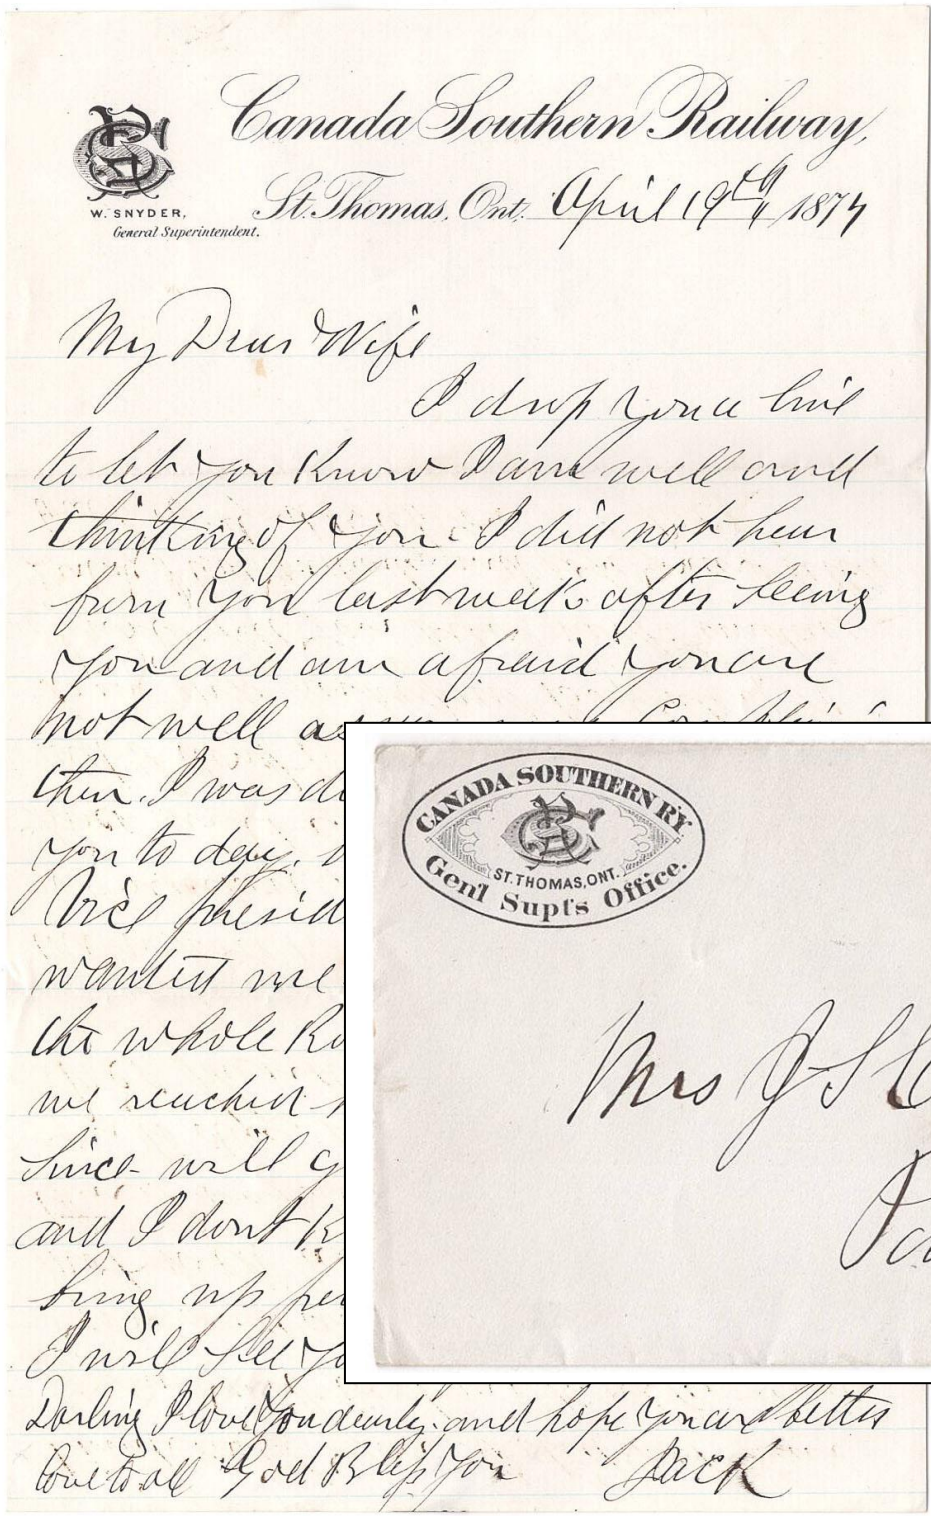 Canada Southern Railway,
W. SNYDER,
General Superintendent.
St. Thomas, Ont. April 19th 1877
My Dear Wife
I drop you a line
to let you know I am well and
thinking of you. I did not hear
from you last week after seeing
you and am afraid you are
not well as
then. I was
you to day.
Vice presid
wanted me
the whole
we reached
Since will g
and I dont k
bring up
I will see yo
Darling I love you dearly. and hope you are better
Love to all God Bless You Jack
CANADA SOUTHERN RY.
ST. THOMAS, ONT.
Gen'l Supt's Office.
Mrs J S